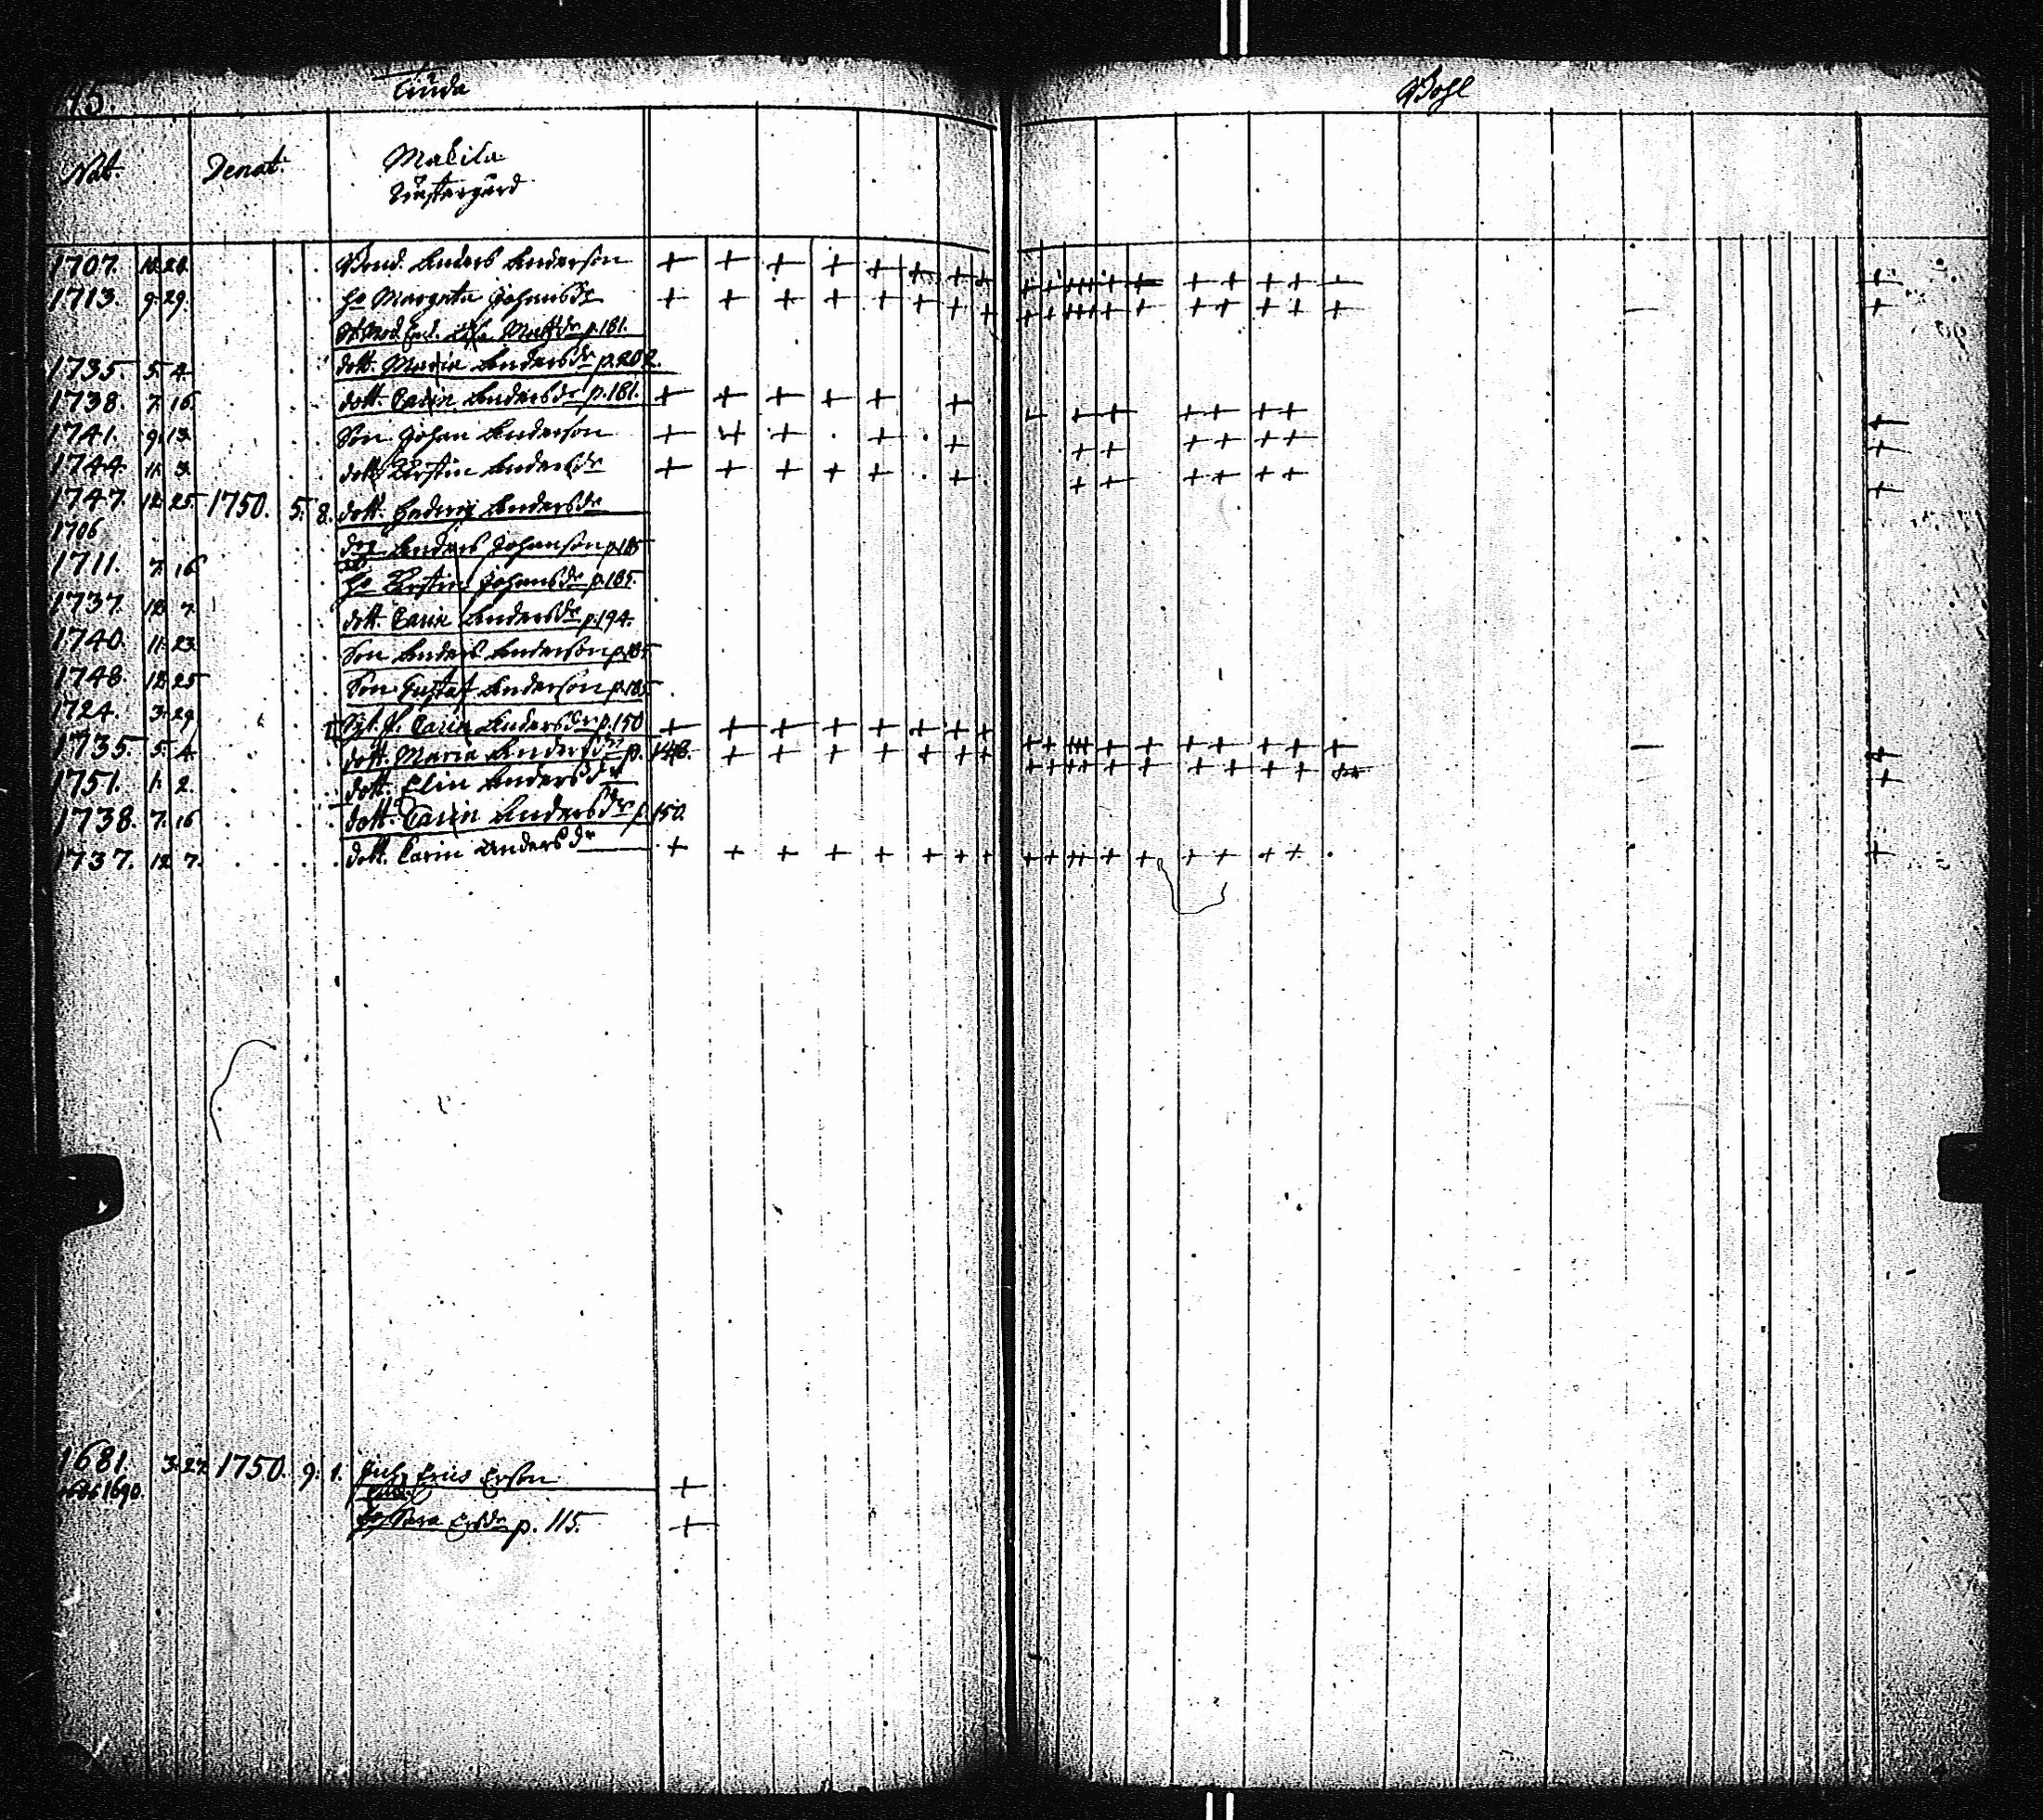 Bohl
Nat. Denat. Makila
Wästergård
1707. 10. 28. Bond. Anders Anderson
1713. 9. 29. ho Margeta Johansdr
p. 181.
1735 5. 4. dott. Maria Andersdr p. 202.
1738. 7. 16. dott. Carin Andersdr p. 181.
1741. 9. 13. Son Johan Anderson
1744. 11. 3. dott. Kerstin Andersdr
1747. 12. 25 1750. 5. 8. dott. Hedvig Andersdr
1706 Anders Johanson p. 185
1711. 7. 16 ho Kerstin Johansdr p. 185.
1737. 12. 7. dott. Carin Andersdr p. 194.
1740. 11. 23. Son Anders Anderson p. 185
1748. 12. 25 Son Gustaf Anderson p. 185.
1724. 3. 29. Carin Andersdr p. 150
1735. 5. 4. dott. Maria Andersdr p. 148.
1751. 1. 2. dott. Elin Andersdr
1738. 7. 16 dott. Carin Andersdr p. 150.
1737. 12. 7. dott. Carin Andersdr
1681. 3. 27. 1750. 9. 1. Eric Erson
1690. Sara Ersdr p. 115.